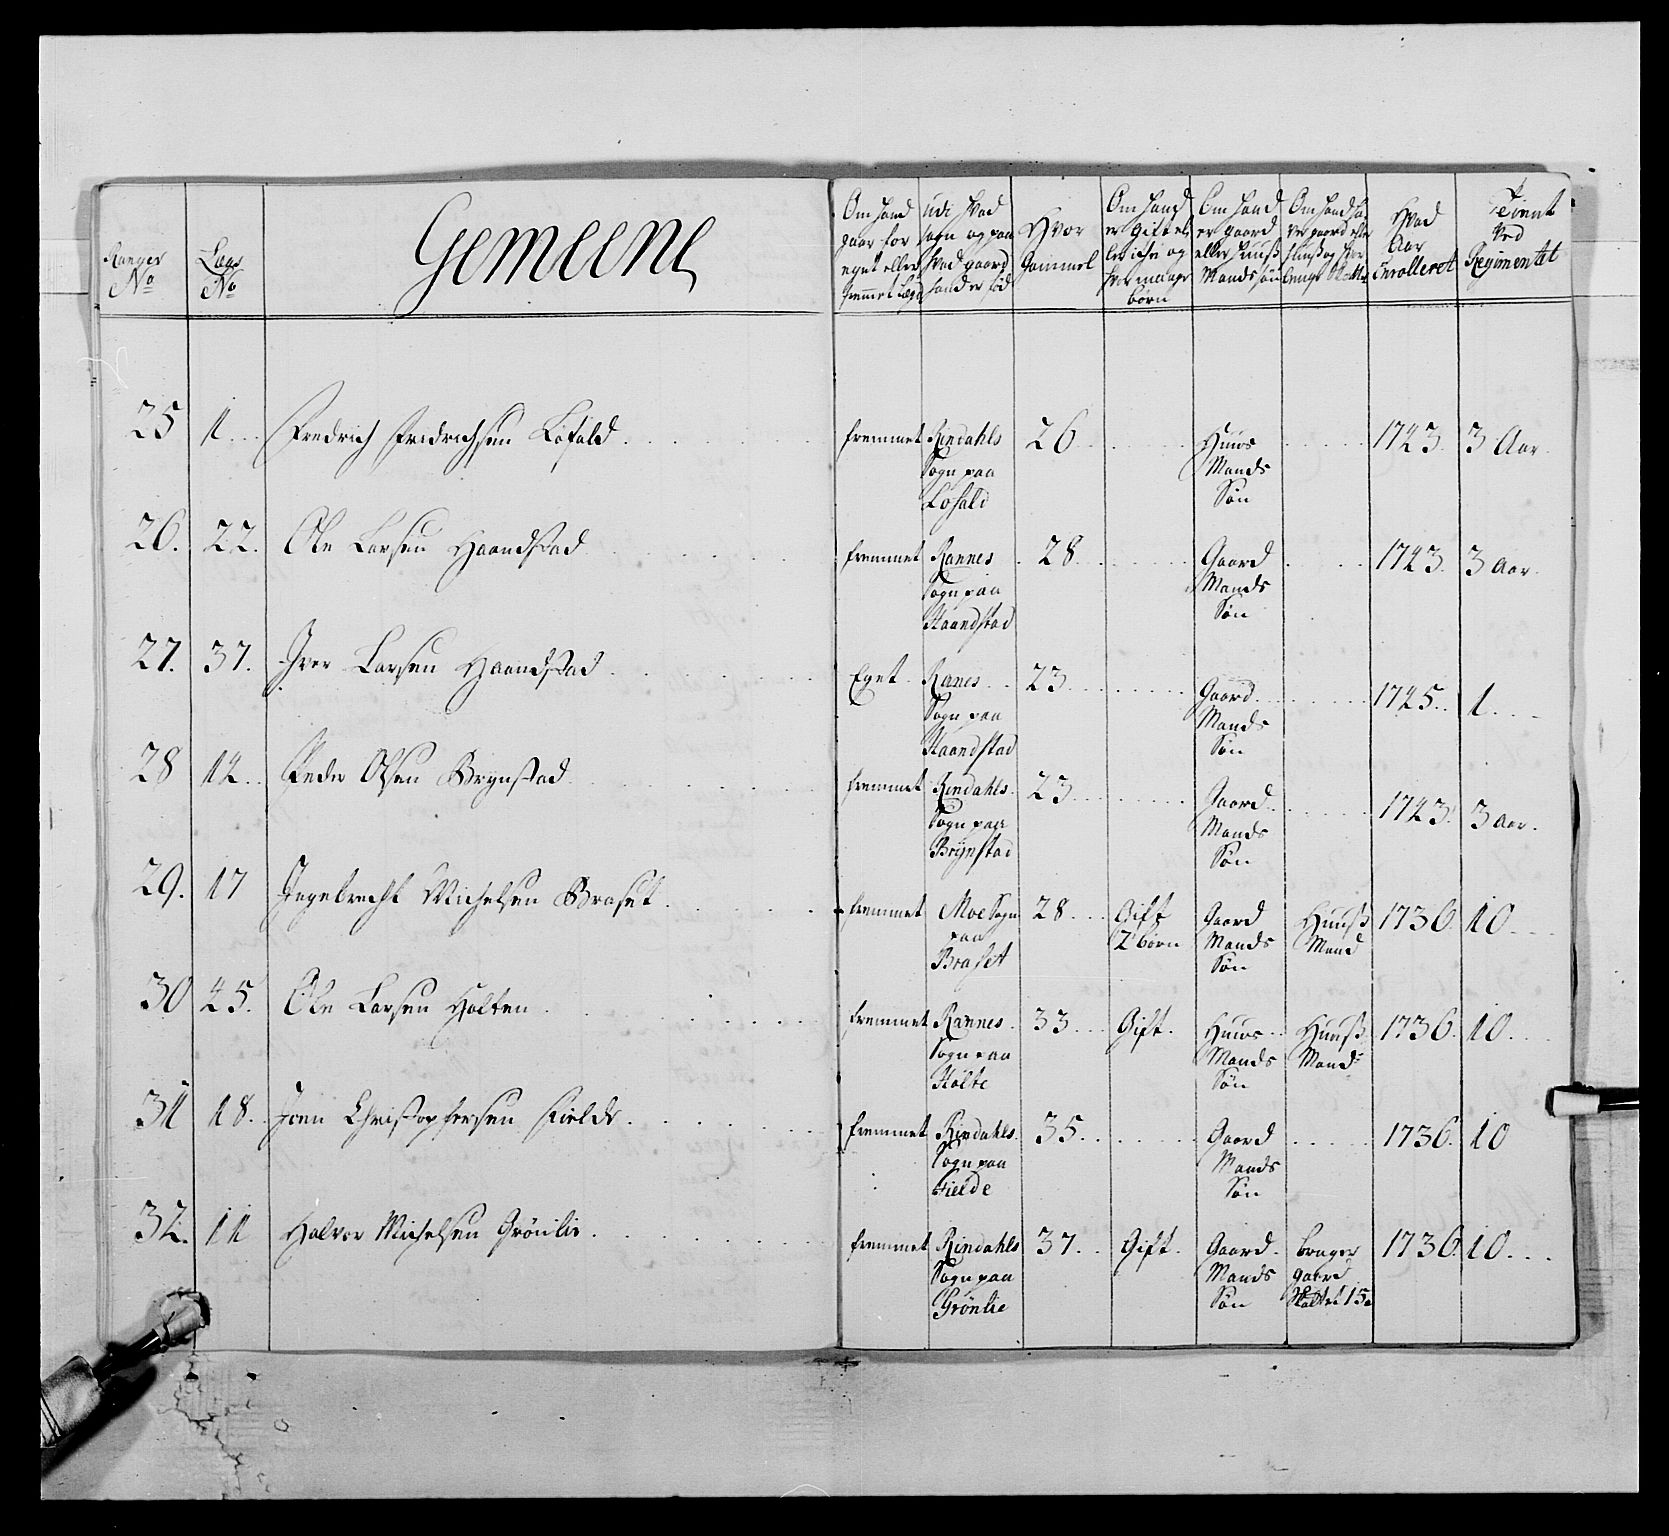 Ranger No
Laas No
Gemeene
Om hand gaar for eget eller fremmet Lægd
Udi hvad sogn og paa hvad gaard hand er fød
Hvor Gammel
Om hand er gift eller icke og hvor mange børn
Om hand er gaard eller Huuß Mands søn
Hvad Aar Enrolleret
Tient ved Regimentet
25 1 Fredrich Fridrichsen Løfald fremmet Rindahls Sogn paa Løfald 26 Huus Mands Søn 1743 3 Aar
26. 22. Ole Larsen Haandstad fremmet Rannes Sogn paa Haandstad 28 Gaard Mands Søn 1743 3 Aar
27. 37. Iver Larsen Haandstad Eget Ranes Sogn paa Haandstad 23 Gaard Mands Søn 1745 1
28 14 Peder Olsen Brÿnstad fremmet Rindahls Sogn paa Brÿnstad 23 Gaard Mands Søn 1743 3 Aar
29. 17 Ingebrecht Michelsen Braset fremmet Moe Sogn paa Braset 28 Gift 2 børn Gaard Mands Søn Huuß Mand 1736 10
30 45. Ole Larsen Holten fremmet Rannes Sogn paa Holte 33 Gift Huus Mands Søn Huuß Mand 1736 10
31 18. Joen Christophersen Fielde fremmet Rindahls Sogn paa Fielde 35 Gaard Mands Søn 1736 10
32. 11 Halvor Michelsen Grönlie fremmet Rindahls Sogn paa Grönlie 37 Gift Gaard Mands Søn bruger gaard 1736 10